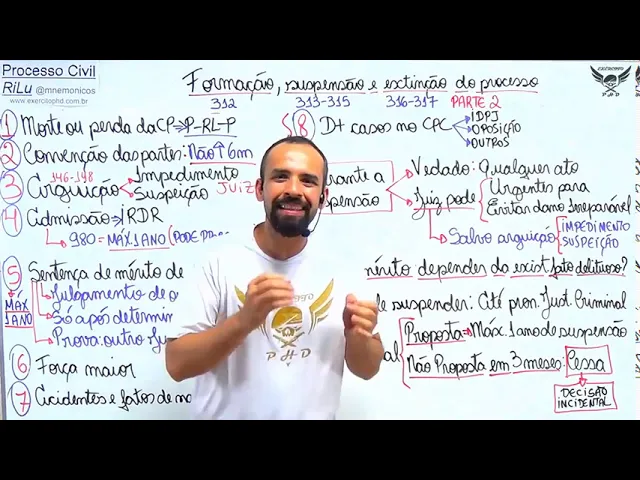 Processo Civil
RiLu @mnemonicos
www.exercitophd.com.br
Formação, suspensão e extinção do processo
312 313-315 316-317 PARTE 2
EXÉRCITO
PHD
1 Morte ou perda da CP⇒P-RL-P
2 Convenção das partes: Não ↑6m
146-148
3 Arguição Impedimento
Suspeição JUIZ
4 Admissão⇒IRDR
980=MÁX 1 ANO (PODE
5 Sentença de mérito de
MÁX
1 ANO
Julgamento de
Só após determin
Prova: outro Ju
6 Força maior
7 Acidentes e fatos de na
8 D+ casos no CPC
IDPJ
OPOSIÇÃO
OUTROS
rante a
spensão
Vedado: Qualquer ato
Juiz pode
Urgentes para
Evitar dano Irreparável
Salvo arguição
IMPEDIMENTO
SUSPEIÇÃO
mérito depende do exist fato delituoso?
de suspender: Até pron. Just. Criminal
Proposta⇒Máx. 1 ano de suspensão
Não Proposta em 3 meses: Cessa
DECISÃO
INCIDENTAL
PHD